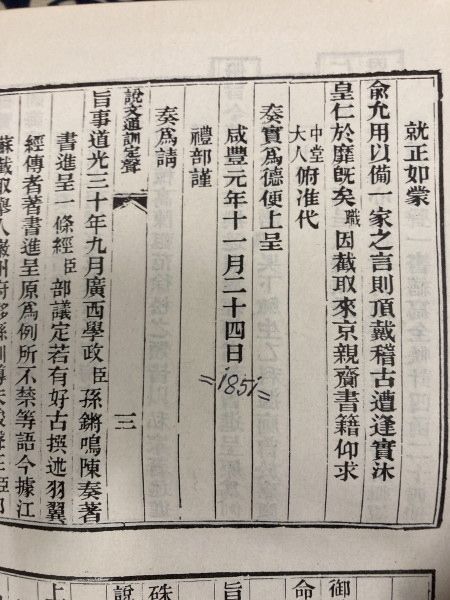 就正如蒙
俞允用以備一家之言則頂戴稽古遭逢實沐
皇仁於靡旣矣職因截取來京親齎書籍仰求
中堂
大人俯准代
奏實爲德便上呈
咸豐元年十一月二十四日
=1851=
禮部謹
奏爲請
說文通訓定聲
三
旨事道光三十年九月廣西學政臣孫鏘鳴陳奏著
書進呈一條經臣部議定若有好古撰述羽翼
經傳者著書進呈原爲例所不禁等語今據江
蘇截取舉人
御
命
旨
硃
說
上